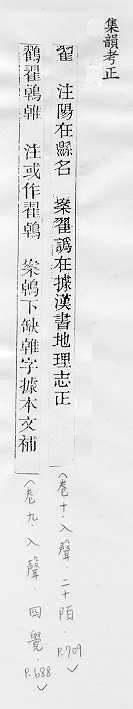 集韻考正
翟　注陽在縣名　案翟譌在據漢書地理志正
(卷十．入聲．二十陌．P.709
鸐翟鶾雗　注或作翟鶾　案鶾下缺雗字據本文補
(卷九．入聲．四覺．P.688